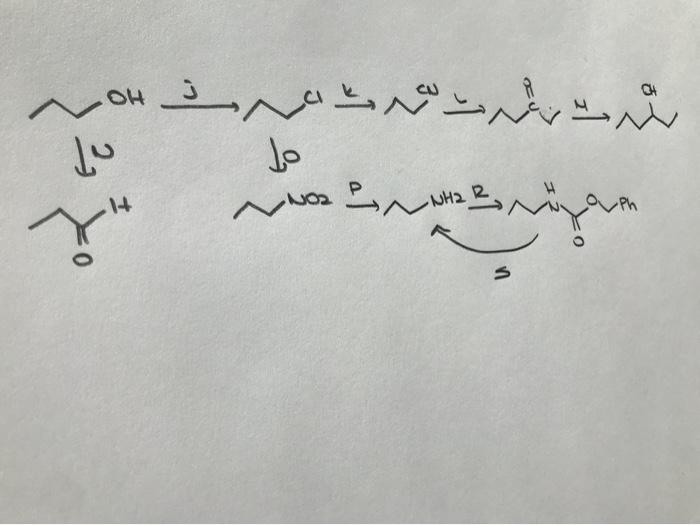 OH j Cl k CN L O C M OH
N O
H O NO2 P NH2 R H N O O Ph
S